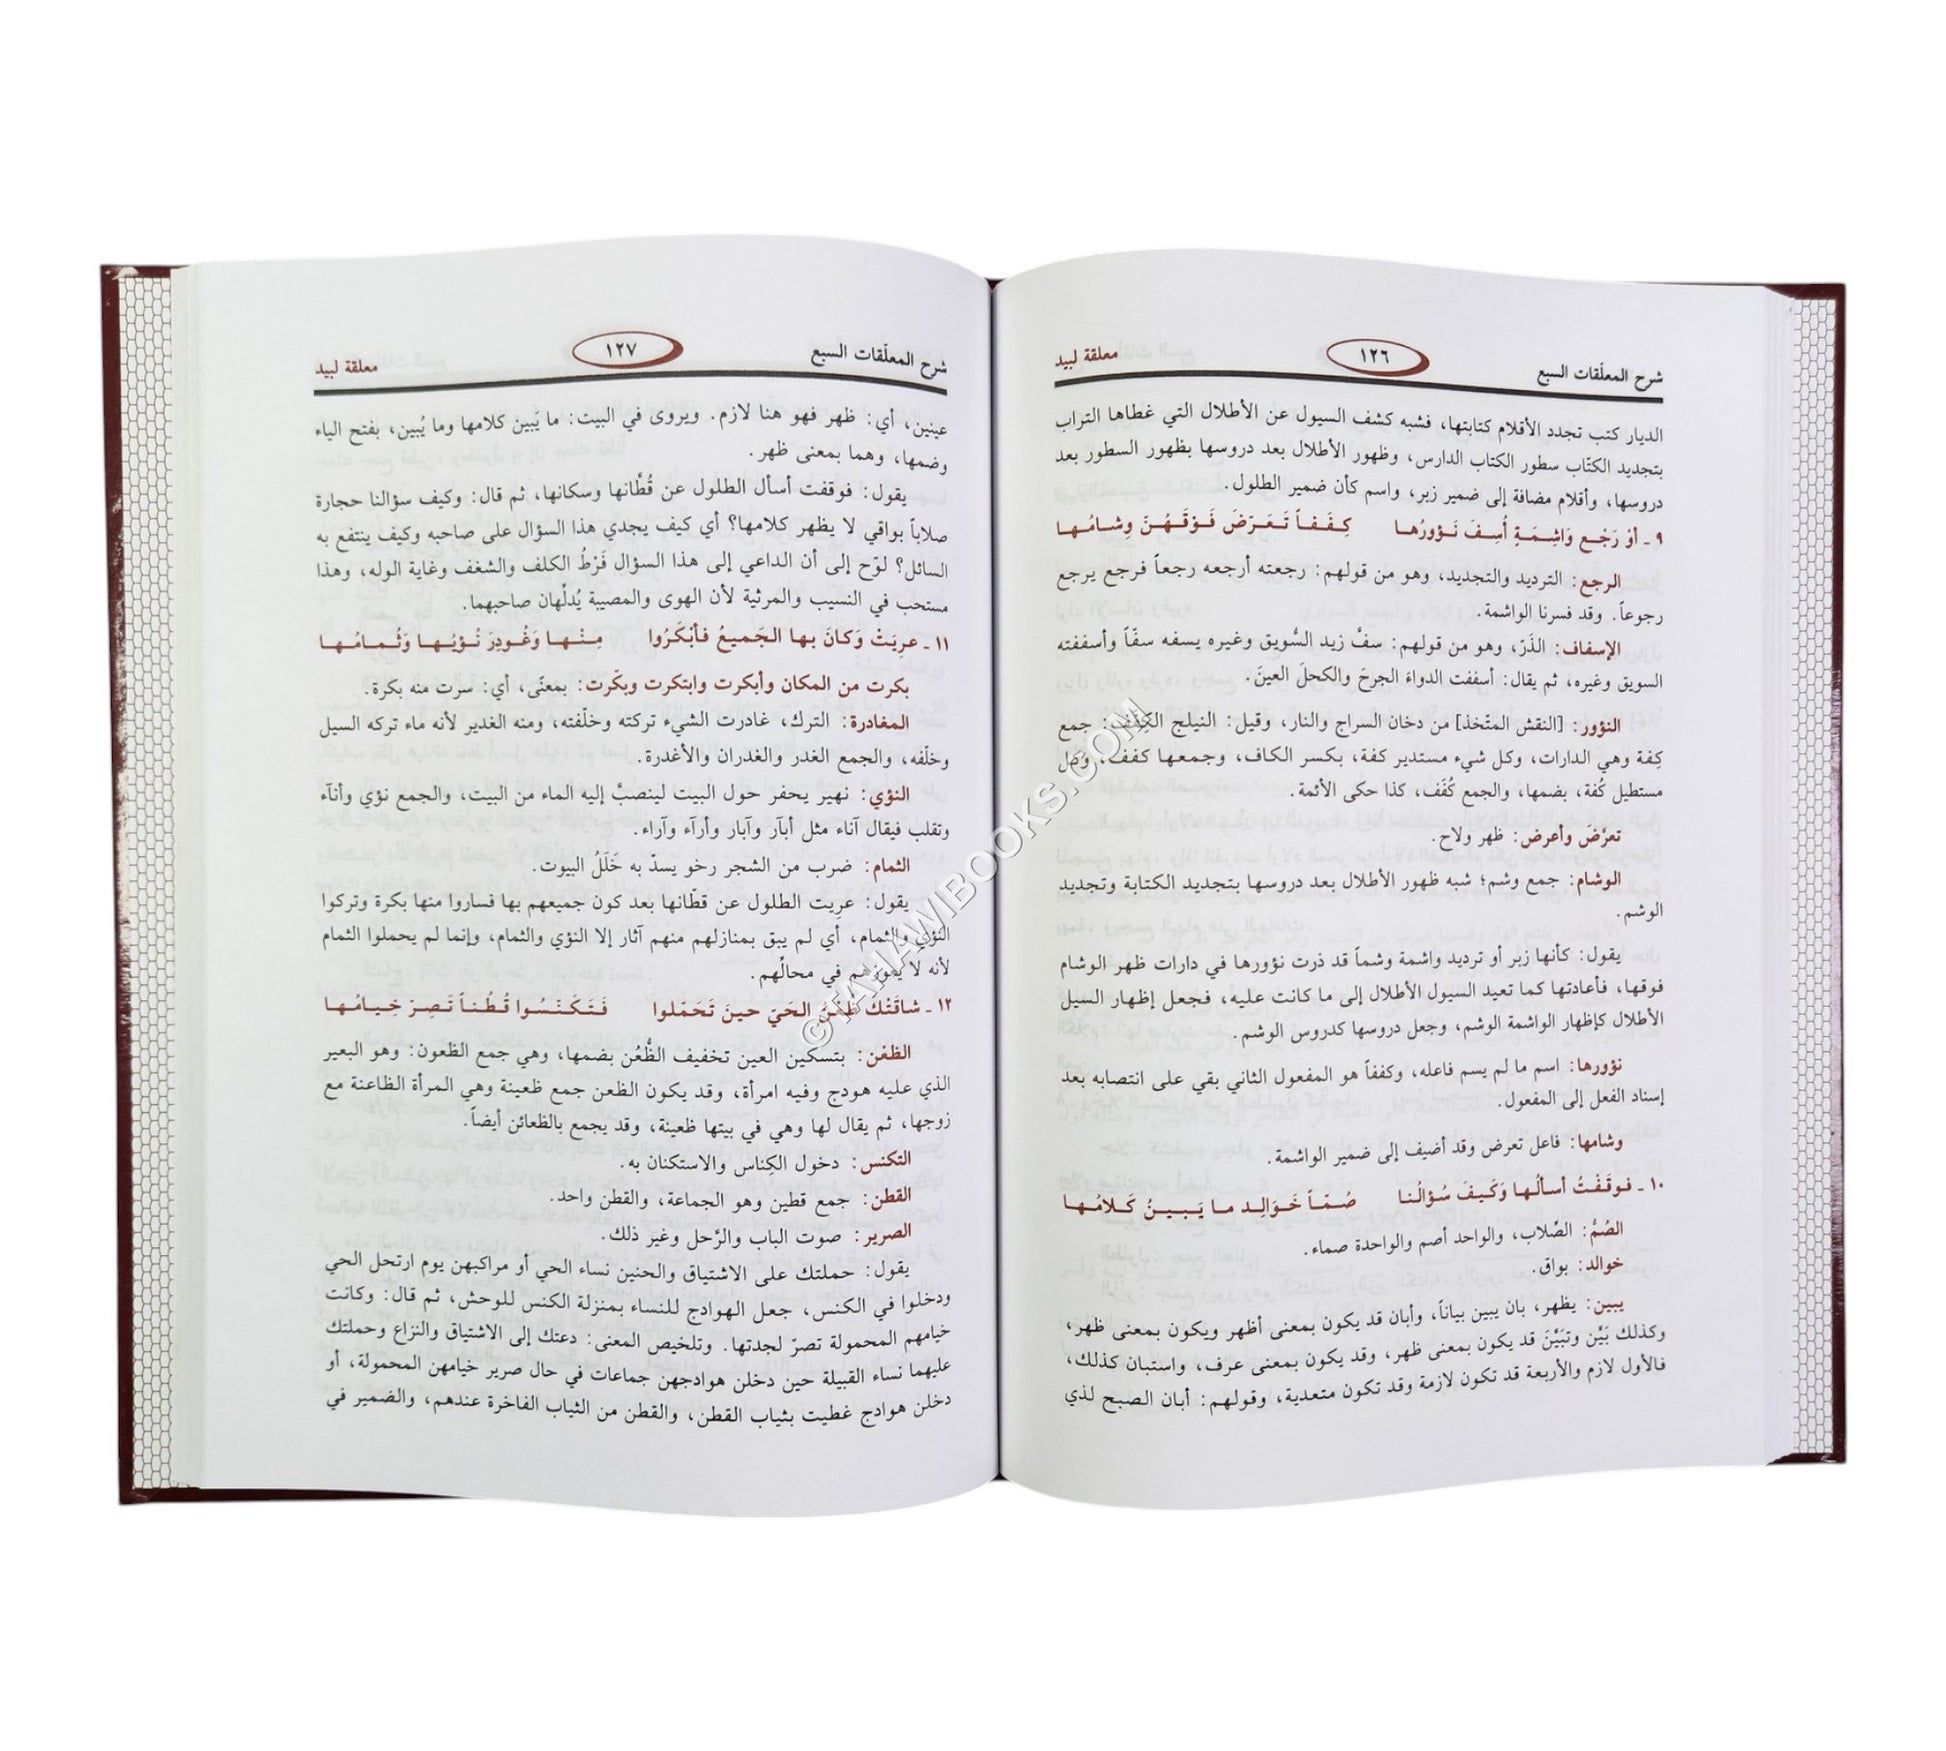 شرح المعلّقات السبع
١٢٦
معلقة لبيد
الديار كتب تجدد الأقلام كتابتها، فشبه كشف السيول عن الأطلال التي غطاها التراب
بتجديد الكتّاب سطور الكتاب الدارس، وظهور الأطلال بعد دروسها بظهور السطور بعد
دروسها، وأقلام مضافة إلى ضمير زبر، واسم كأن ضمير الطلول.
٩ ـ أَوْ رَجْعِ وَاشِمَةٍ أُسِفَ نَـؤورُهـا كِـفَـفـاً تَـعَـرّضَ فَـوْقَـهُـنّ وِشـامُـهـا
الرجع: الترديد والتجديد، وهو من قولهم: رجعته أرجعه رجعاً فرجع يرجع
رجوعاً. وقد فسرنا الواشمة.
الإسفاف: الذَرّ، وهو من قولهم: سفَّ زيد السَّويق وغيره يسفه سفّاً وأسففته
السويق وغيره، ثم يقال: أسففت الدواءَ الجرحَ والكحلَ العينَ.
النؤور: [النقش المتّخذ] من دخان السراج والنار، وقيل: النيلج الكِفَف: جمع
كِفة وهي الدارات، وكل شيء مستدير كفة، بكسر الكاف، وجمعها كفف، وكل
مستطيل كُفة، بضمها، والجمع كُفَف، كذا حكى الأئمة.
تعرَّضَ وأعرض: ظهر ولاح.
الوشام: جمع وشم؛ شبه ظهور الأطلال بعد دروسها بتجديد الكتابة وتجديد
الوشم.
يقول: كأنها زبر أو ترديد واشمة وشماً قد ذرت نؤورها في دارات ظهر الوشام
فوقها، فأعادتها كما تعيد السيول الأطلال إلى ما كانت عليه، فجعل إظهار السيل
الأطلال كإظهار الواشمة الوشم، وجعل دروسها كدروس الوشم.
نؤورها: اسم ما لم يسم فاعله، وكففاً هو المفعول الثاني بقي على انتصابه بعد
إسناد الفعل إلى المفعول.
وشامها: فاعل تعرض وقد أضيف إلى ضمير الواشمة.
١٠ ـ فـوقَـفْـتُ أسألُـهـا وَكَـيـفَ سُـؤالُـنـا صُـمّـاً خَـوَالِـد مـا يَـبـيـنُ كَـلامُـهـا
الصُمُّ: الصِّلاب، والواحد أصم والواحدة صماء.
خوالد: بواق.
يبين: يظهر، بان يبين بياناً، وأبان قد يكون بمعنى أظهر ويكون بمعنى ظهر،
وكذلك بَيَّن وتَبَيَّنَ قد يكون بمعنى ظهر، وقد يكون بمعنى عرف، واستبان كذلك،
فالأول لازم والأربعة قد تكون لازمة وقد تكون متعدية، وقولهم: أبان الصبح لذي
شرح المعلّقات السبع
١٢٧
معلقة لبيد
عينين، أي: ظهر فهو هنا لازم. ويروى في البيت: ما يَبين كلامها وما يُبين، بفتح الياء
وضمها، وهما بمعنى ظهر.
يقول: فوقفت أسأل الطلول عن قُطَّانها وسكانها، ثم قال: وكيف سؤالنا حجارة
صلاباً بواقي لا يظهر كلامها؟ أي كيف يجدي هذا السؤال على صاحبه وكيف ينتفع به
السائل؟ لوّح إلى أن الداعي إلى هذا السؤال فَرْطُ الكلف والشغف وغاية الوله، وهذا
مستحب في النسيب والمرثية لأن الهوى والمصيبة يُدلِّهان صاحبهما.
١١ ـ عرِيَتْ وَكانَ بها الجَميعُ فأبْكَرُوا مِـنْـهـا وَغُـودِرَ نُـؤيُـهـا وَثُـمـامُـهـا
بكرت من المكان وأبكرت وابتكرت وبكّرت: بمعنّى، أي: سرت منه بكرة.
المغادرة: الترك، غادرت الشيء تركته وخلّفته، ومنه الغدير لأنه ماء تركه السيل
وخلّفه، والجمع الغدر والغدران والأغدرة.
النؤي: نهير يحفر حول البيت لينصبَّ إليه الماء من البيت، والجمع نؤي وأنآء
وتقلب فيقال آناء مثل أبآر وآبار وأرآء وآراء.
الثمام: ضرب من الشجر رخو يسدّ به خَلَلُ البيوت.
يقول: عرِيت الطلول عن قطّانها بعد كون جميعهم بها فساروا منها بكرة وتركوا
النؤي والثمام، أي لم يبق بمنازلهم منهم آثار إلا النؤي والثمام، وإنما لم يحملوا الثمام
لأنه لا يعوزهم في محالِّهم.
١٢ ـ شاقَتْكَ ظُعْنُ الحَيّ حينَ تَحَمّلوا فَـتَـكَـنّـسُـوا قُـطُـنـاً تَـصِـرّ خِـيـامُـهـا
الظعْن: بتسكين العين تخفيف الظُّعُن بضمها، وهي جمع الظعون: وهو البعير
الذي عليه هودج وفيه امرأة، وقد يكون الظعن جمع ظعينة وهي المرأة الظاعنة مع
زوجها، ثم يقال لها وهي في بيتها ظعينة، وقد يجمع بالظعائن أيضاً.
التكنس: دخول الكِناس والاستكنان به.
القطن: جمع قطين وهو الجماعة، والقطن واحد.
الصرير: صوت الباب والرَّحل وغير ذلك.
يقول: حملتك على الاشتياق والحنين نساء الحي أو مراكبهن يوم ارتحل الحي
ودخلوا في الكنس، جعل الهوادج للنساء بمنزلة الكنس للوحش، ثم قال: وكانت
خيامهم المحمولة تصرّ لجدتها. وتلخيص المعنى: دعتك إلى الاشتياق والنزاع وحملتك
عليهما نساء القبيلة حين دخلن هوادجهن جماعات في حال صرير خيامهن المحمولة، أو
دخلن هوادج غطيت بثياب القطن، والقطن من الثياب الفاخرة عندهم، والضمير في
©TAHAWIBOOKS.COM